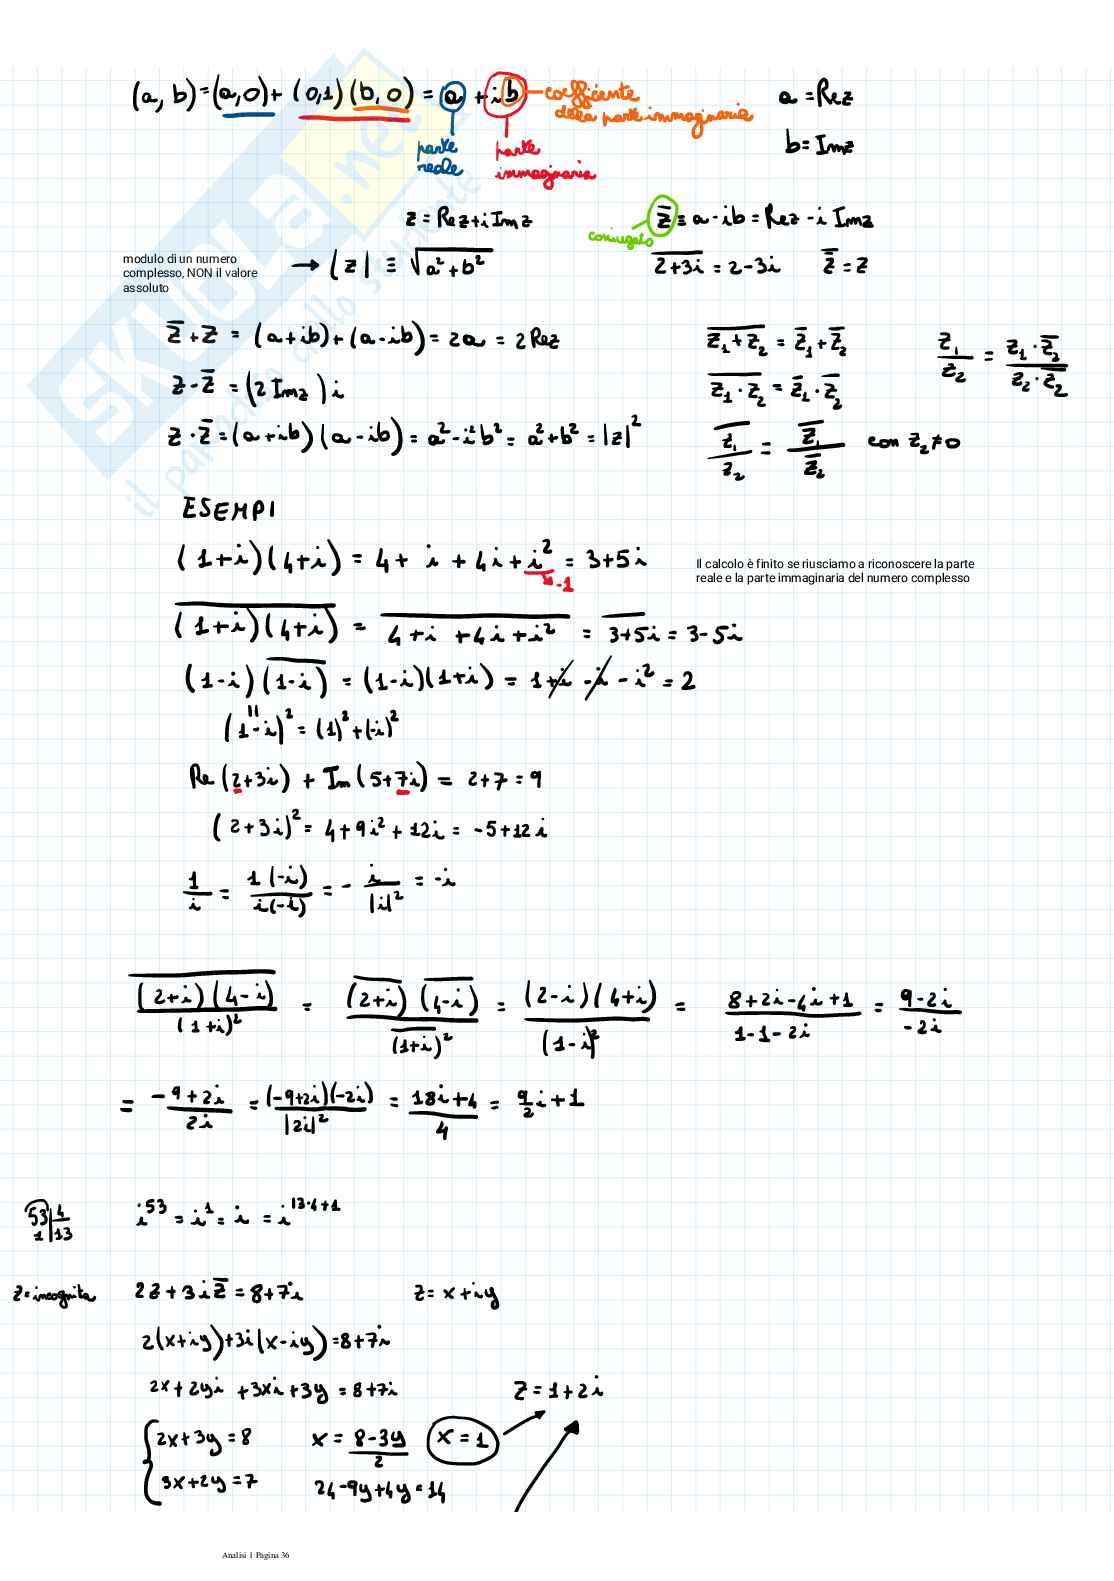 (a, b) = (a,0) + (0,1)(b,0) = a + ib coefficiente della parte immaginaria a = Rez
parte reale parte immaginaria b = Imz
z = Rez + i Imz z̄ = a - ib = Rez - i Imz
coniugato
modulo di un numero
complesso, NON il valore
assoluto
→ |z| ≡ √(a² + b²) \overline{2+3i} = 2-3i \overline{z̄} = z
z̄ + z = (a+ib) + (a-ib) = 2a = 2Rez \overline{z₁+z₂} = z̄₁ + z̄₂ z₁/z₂ = (z₁ · z̄₂)/(z₂ · z̄₂)
z - z̄ = (2 Imz) i \overline{z₁ · z₂} = z̄₁ · z̄₂
z · z̄ = (a+ib)(a-ib) = a² - i²b² = a² + b² = |z|² \overline{z₁/z₂} = z̄₁/z̄₂ con z₂ ≠ 0
ESEMPI
(1+i)(4+i) = 4 + i + 4i + i² = 3+5i
→ -1
Il calcolo è finito se riusciamo a riconoscere la parte
reale e la parte immaginaria del numero complesso
\overline{(1+i)(4+i)} = \overline{4+i+4i+i²} = \overline{3+5i} = 3-5i
(1-i)\overline{(1-i)} = (1-i)(1+i) = 1+i-i-i² = 2
"
(1-i)² = (1)² + (-i)²
Re(2+3i) + Im(5+7i) = 2+7 = 9
(2+3i)² = 4+9i²+12i = -5+12i
1/i = 1(-i)/i(-i) = - i/|i|² = -i
\overline{(2+i)(4-i)}/(1+i)² = \overline{(2+i)} \overline{(4-i)}/\overline{(1+i)}² = (2-i)(4+i)/(1-i)² = (8+2i-4i+1)/(1-1-2i) = (9-2i)/(-2i)
= (-9+2i)/2i = (-9+2i)(-2i)/|2i|² = (18i+4)/4 = 9/2 i + 1
53 | 4
1 | 13
i⁵³ = i¹ = i = i^{13·4+1}
z = incognita 2z + 3i z̄ = 8+7i z = x+iy
2(x+iy)+3i(x-iy) = 8+7i
2x + 2yi + 3xi + 3y = 8+7i z = 1+2i
{ 2x+3y = 8 x = (8-3y)/2 x = 1
3x+2y = 7 24-9y+4y = 14
Analisi 1 Pagina 36
SKUOLA.net
il paradiso dello studente